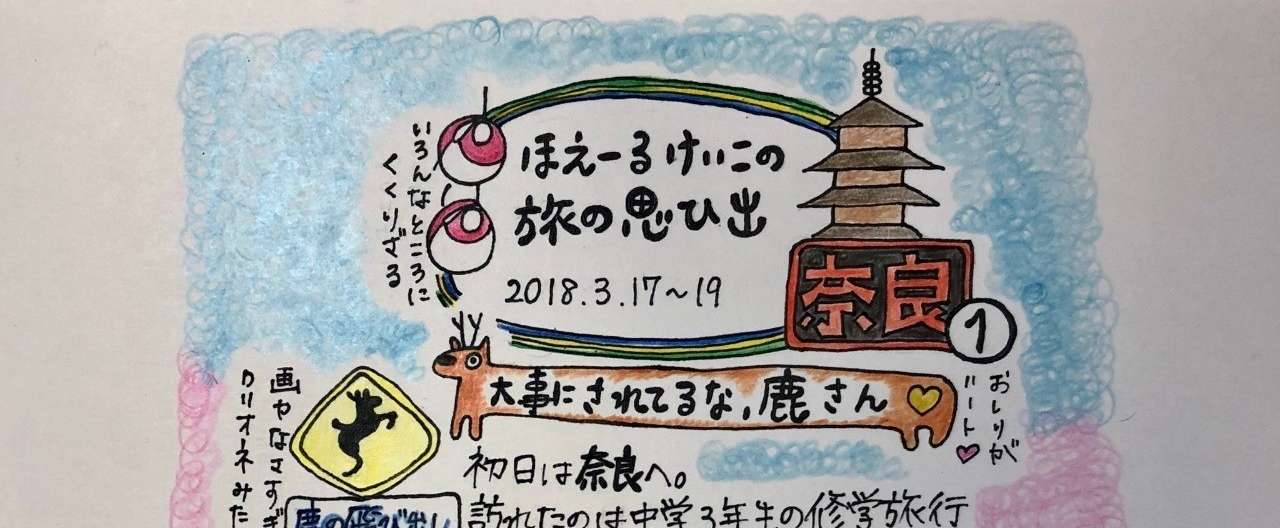 ほえーるけいこの
旅の思ひ出
2018.3.17〜19
奈良
1
いろんなところに
くくりざる
大事にされてるな,鹿さん
おしりが
ハート
画力なさすぎ
クリオネみた
鹿の飛び出し
初日は奈良へ。
訪れたのは中学3年生の修学旅行